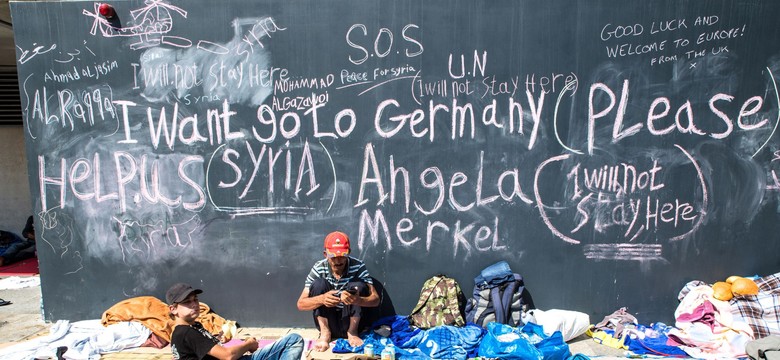 S.O.S
GOOD LUCK AND
WELCOME TO EUROPE!
FROM THE UK
x
Ahmad aljasim
I will not stay Here
Peace For syria
U.N
(I will not stay Here)
MOHAMMAD
ALGAZAWOI
syria
(ALRaqqa)
I want go to Germany (Please)
HeLP.US (SyRiA) Angela
Merkel
(I will not
stay, Here)